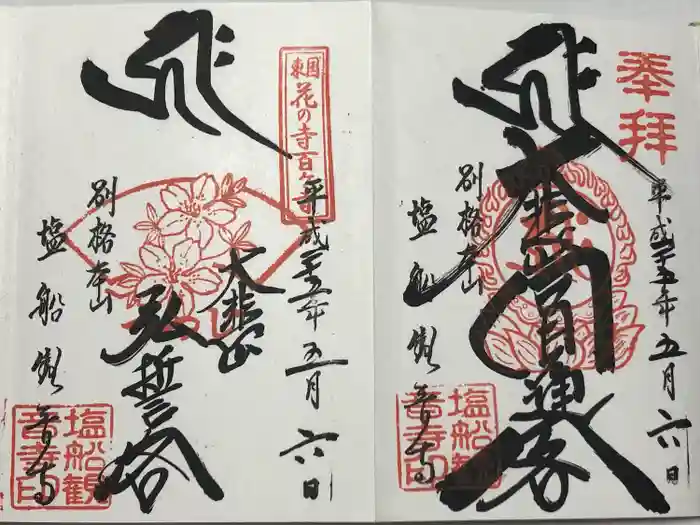 奉拝
平成二十五年五月六日
大悲
別格本山
塩船観音寺
塩船観音寺印
東国花の寺百ヶ寺
平成二十五年五月六日
大悲山
弘誓
別格本山
塩船観音寺
塩船観音寺印